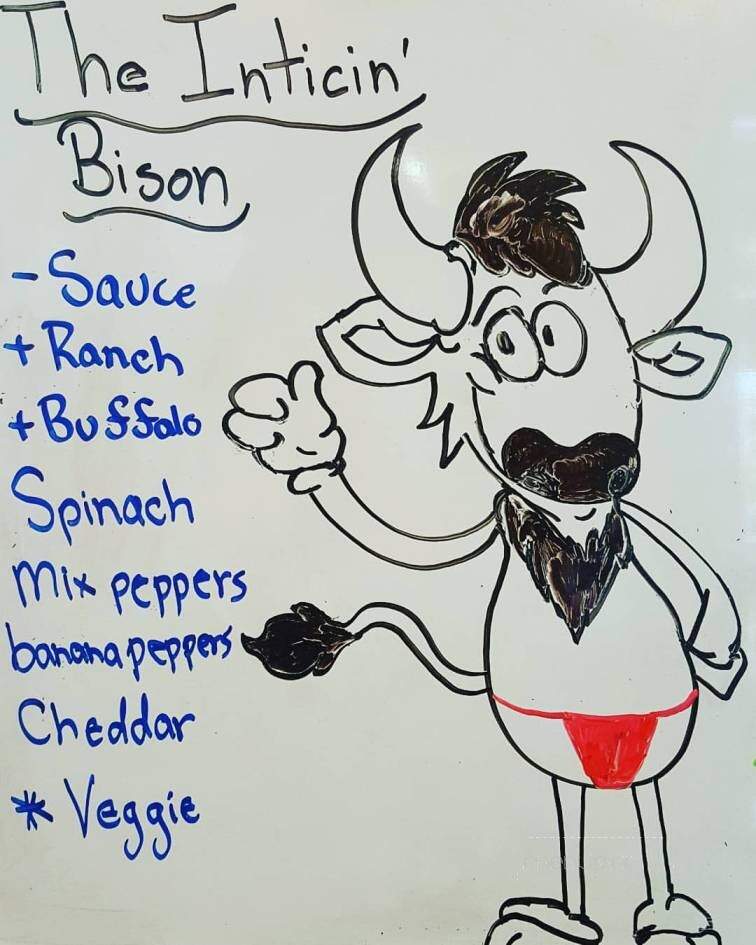 The Inticin'
Bison
- Sauce
+ Ranch
+ Buffalo
Spinach
Mix peppers
banana peppers
Cheddar
* Veggie